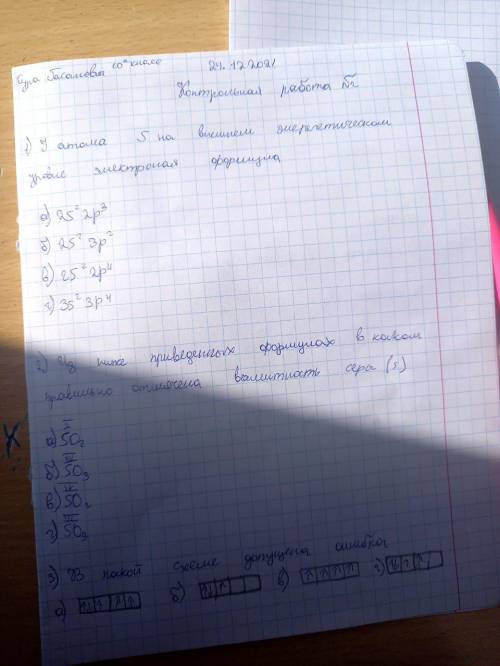 10 класс 24.12 2021
Контрольная работа №2
1) У атома S на внешнем энергетическом
уровне электроная формула
а) 2S² 2p³
б) 2S² 3p²
в) 2S² 2p⁴
г) 3S² 3p⁴
2) Из ниже приведенных формулах в каком
правильно отмечена валитность сера (S)
а) SO₂
б) SO₃
в) SO₂
г) SO₃
3) В какой схеме допущена ошибка
а) ↑↓ ↑ ↑ ↑ б) в) ↑ ↑ ↑ ↑ г)